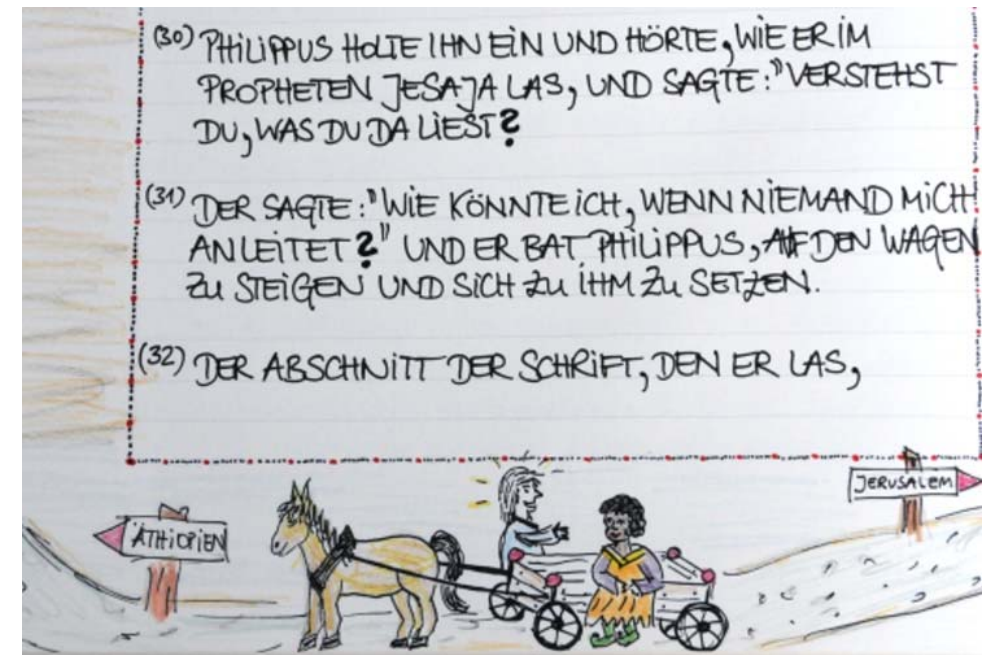 (30) PHiLiPPUS HOLTE IHN EiN UND HÖRTE, WIE ER IM
PROPHETEN JESAJA LAS, UND SAGTE: "VERSTEHST
DU, WAS DU DA LiEST?
(31) DER SAGTE: "WIE KÖNNTE iCH, WENN NIEMAND MiCH
ANLEITET?" UND ER BAT PHiLiPPUS, AUF DEN WAGEN
ZU STEiGEN UND SiCH ZU IHM ZU SETZEN.
(32) DER ABSCHNITT DER SCHRiFT, DEN ER LAS,
JERUSALEM
ÄTHiOPiEN